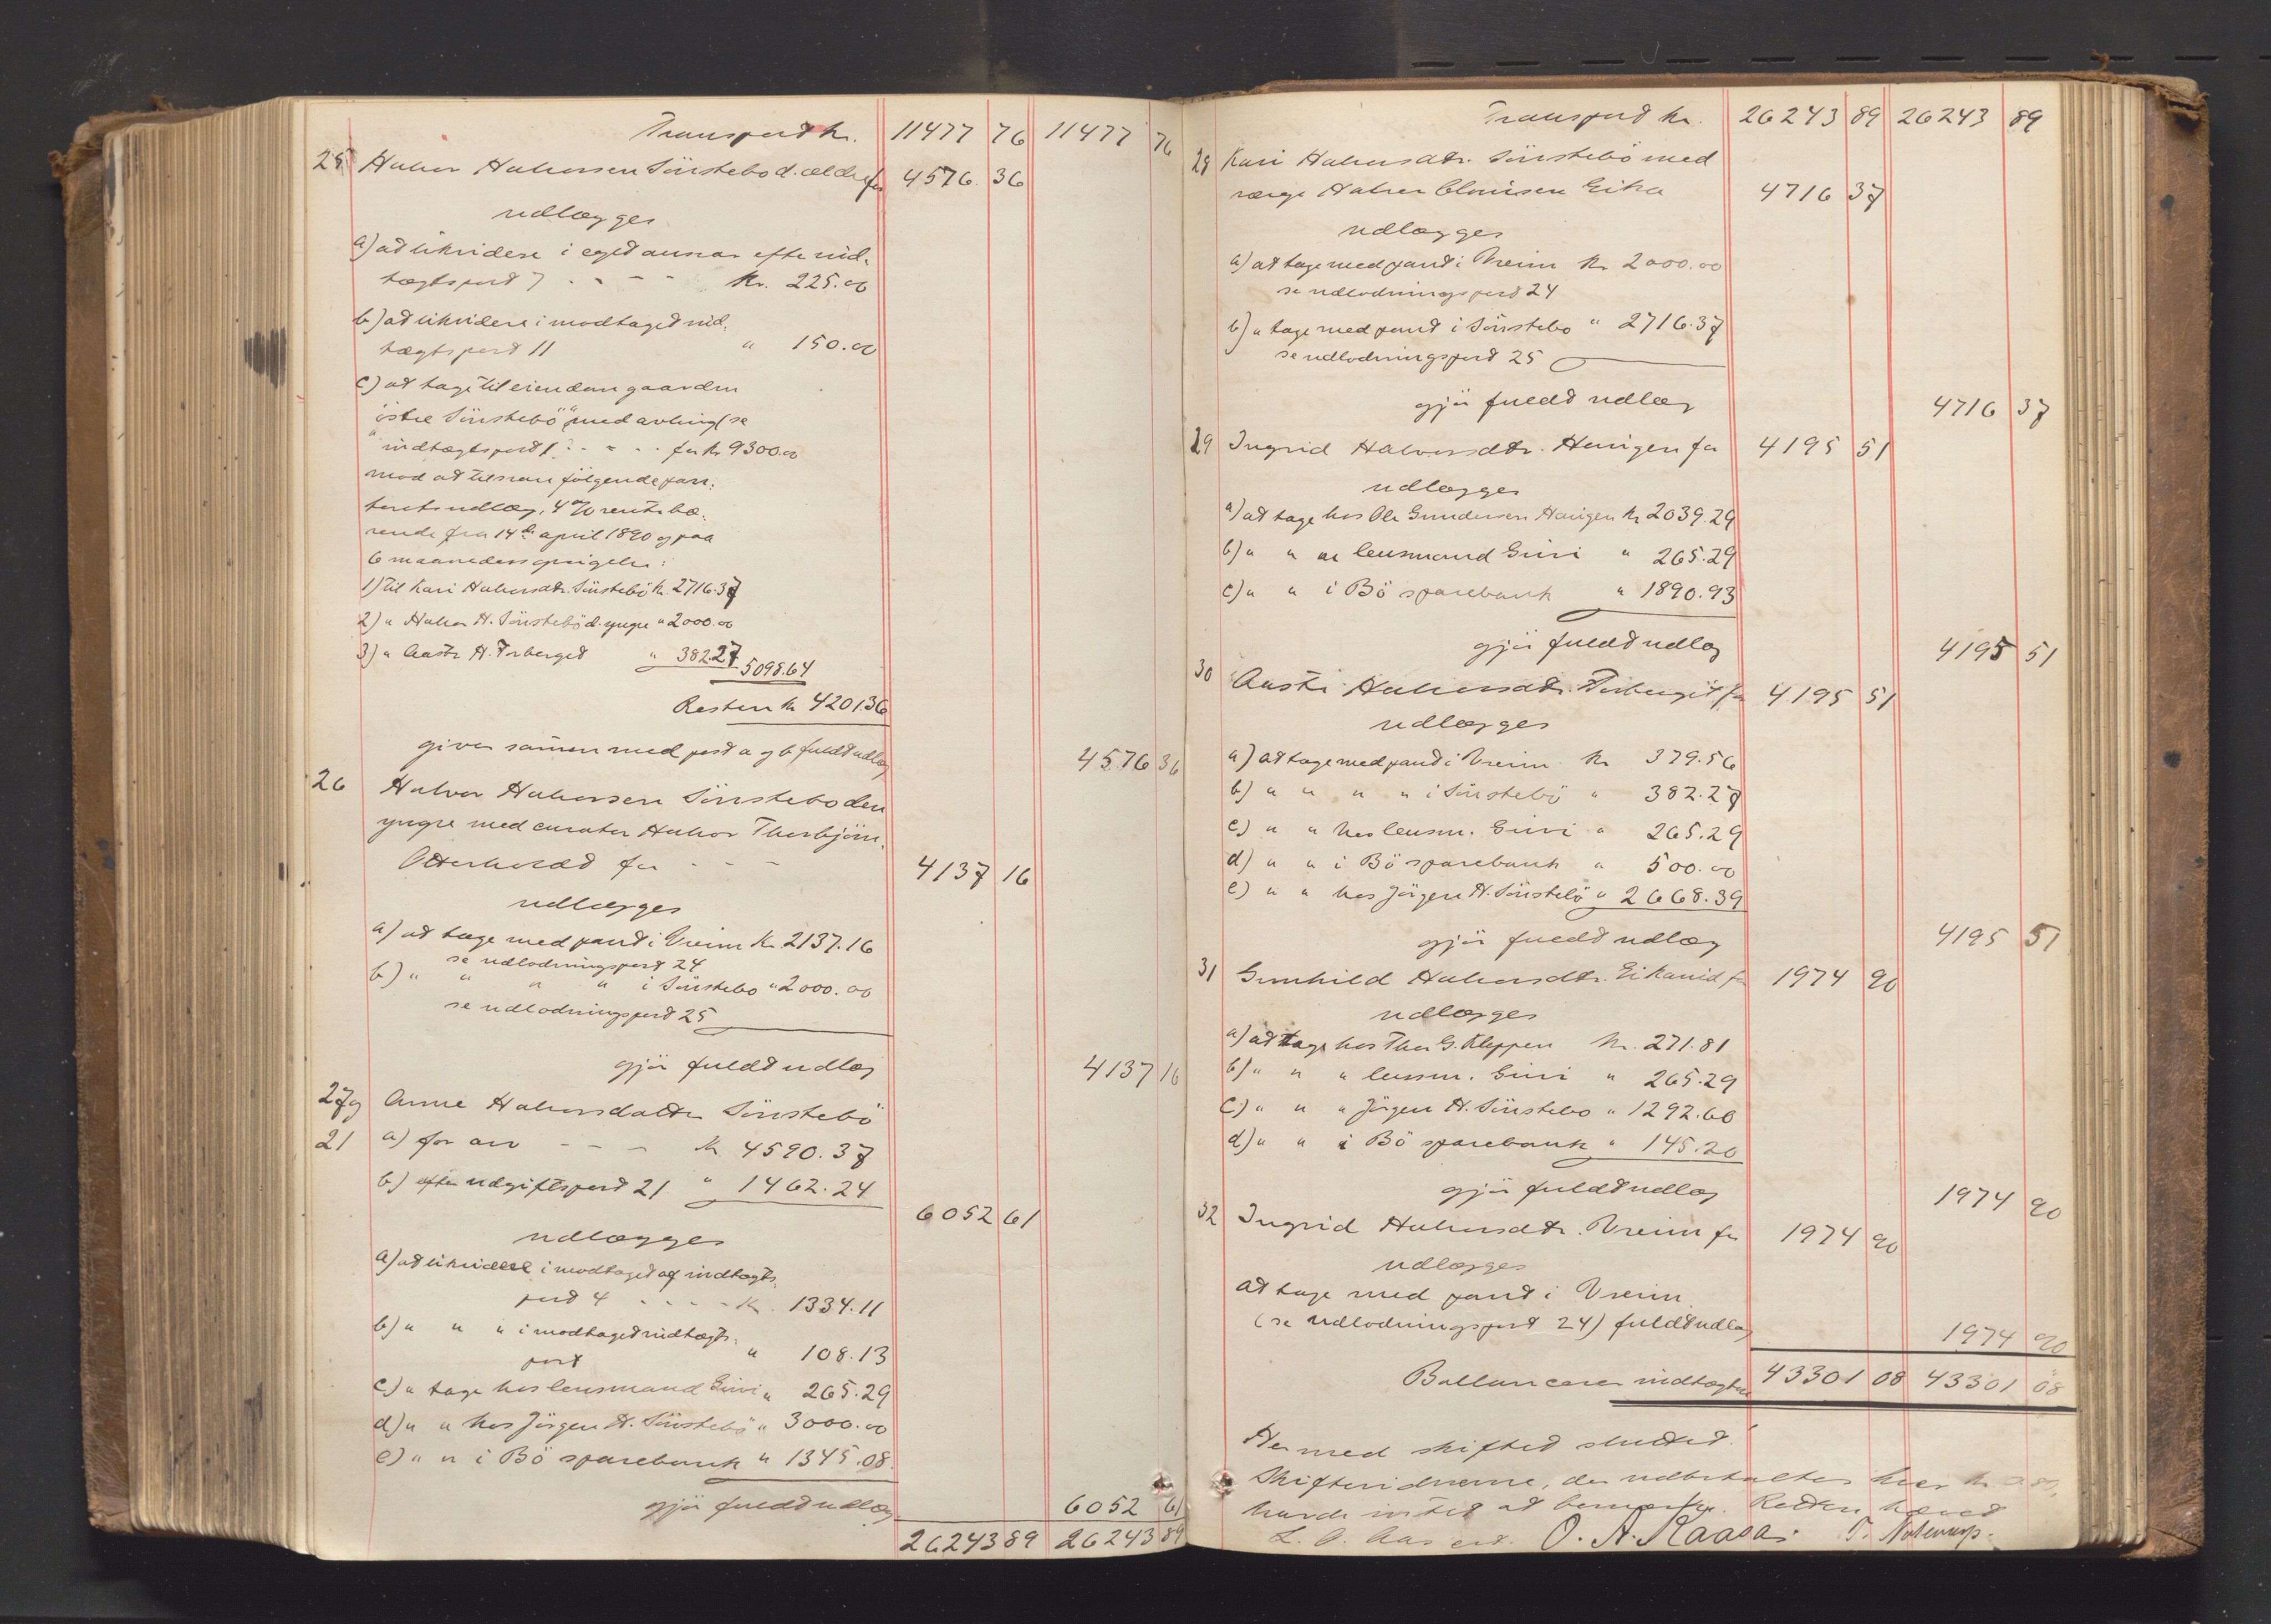 Transport kr. 11477 76 11477 76
25 Halvor Halvorsen Sönstebö d. ældre for 4576. 36
udlægges
a) at likvidere i eget ansvar efter ind-
tægtspost 7 - - - kr. 225.00
b) at likvidere i modtaget ind-
tægtspost 11 " 150.00
c) at tage til eiendom gaarden
"östre Sönstebö" med avling (se
indtægtspost 1 - - - for kr 9300.00
mod at tilsvare fölgende pan-
terets udlæg, 4 % rentebæ-
rende fra 14de april 1890 og paa
6 maaneders opsigelse:
1) til Kari Halvorsdtr. Sönstebö kr. 2716.37
2) " Halvor H. Sönstebö d. yngre " 2000.00
3) " Aaste H. Forberget " 382.27
5098.64
Resten kr 4201.36
giver sammen med post a og b fuldt udlæg 4576 36
26 Halvor Halvorsen Sönstebö den
yngre med curator Halvor Thorbjörns.
Otterholdt for - - - 4137 16
udlægges
a) at tage med pant i Vreim kr. 2137.16
se udlodningspost 24
b) " " " " i Sönstebö " 2000.00
se udlodningspost 25
gjör fuldt udlæg 4137 16
27 og Anne Halvorsdatter Sönstebö
21 a) for arv - - - kr 4590.37
b) efter udgiftspost 21 " 1462.24
6052 61
udlægges
a) at likvidere i modtaget af indtægts-
post 4 - - - - kr. 1334.11
b) " " " i modtaget indtægts-
post " 108.13
c) " tage hos lensmand Sinni " 265.29
d) " " hos Jörgen H. Sönstebö " 3000.00
e) " " i Bö sparebank " 1345.08
gjör fuldt udlæg 6052 61
26243 89 26243 89
Transport kr. 26243 89 26243 89
28 Kari Halvorsdtr. Sönstebö med
værge Halvor Olavsen Eika 4716 37
udlægges
a) at tage med pant i Vreim kr 2000.00
se udlodningspost 24
b) " tage med pant i Sönstebö " 2716.37
se udlodningspost 25
gjör fuldt udlæg 4716 37
29 Ingrid Halvorsdtr. Haugen for 4195 51
udlægges
a) at tage hos Ole Gundersen Haugen kr 2039.29
b) " " " lensmand Sinni " 265.29
c) " " i Bö sparebank " 1890.93
gjör fuldt udlæg 4195 51
30 Aaste Halvorsdtr. Forberget for 4195 51
udlægges
a) at tage med pant i Vreim kr 379.56
b) " " " " i Sönstebö " 382.27
c) " " hos lensm. Sinni " 265.29
d) " " i Bö sparebank " 500.00
e) " " hos Jörgen H. Sönstebö " 2668.39
gjör fuldt udlæg 4195 51
31 Gunhild Halvorsdtr. Eikanid for 1974 90
udlægges
a) at tage hos Thor G. Kleppen kr. 271.81
b) " " " lensm. Sinni " 265.29
c) " " " Jörgen H. Sönstebö " 1292.60
d) " " i Bö sparebank " 145.20
gjör fuldt udlæg 1974 90
32 Ingrid Halvorsdtr. Vreim for 1974 90
udlægges
at tage med pant i Vreim
(se udlodningspost 24) fuldt udlæg 1974 90
Ballancerer indtægten 43301 08 43301 08
Hermed skiftet sluttet.
Skiftevidnerne, der udbetaltes hver kr 0.80,
havde intet at bemærke. Retten hævet
L. O. Aas O. A. Kaasa. T. Nottrup.